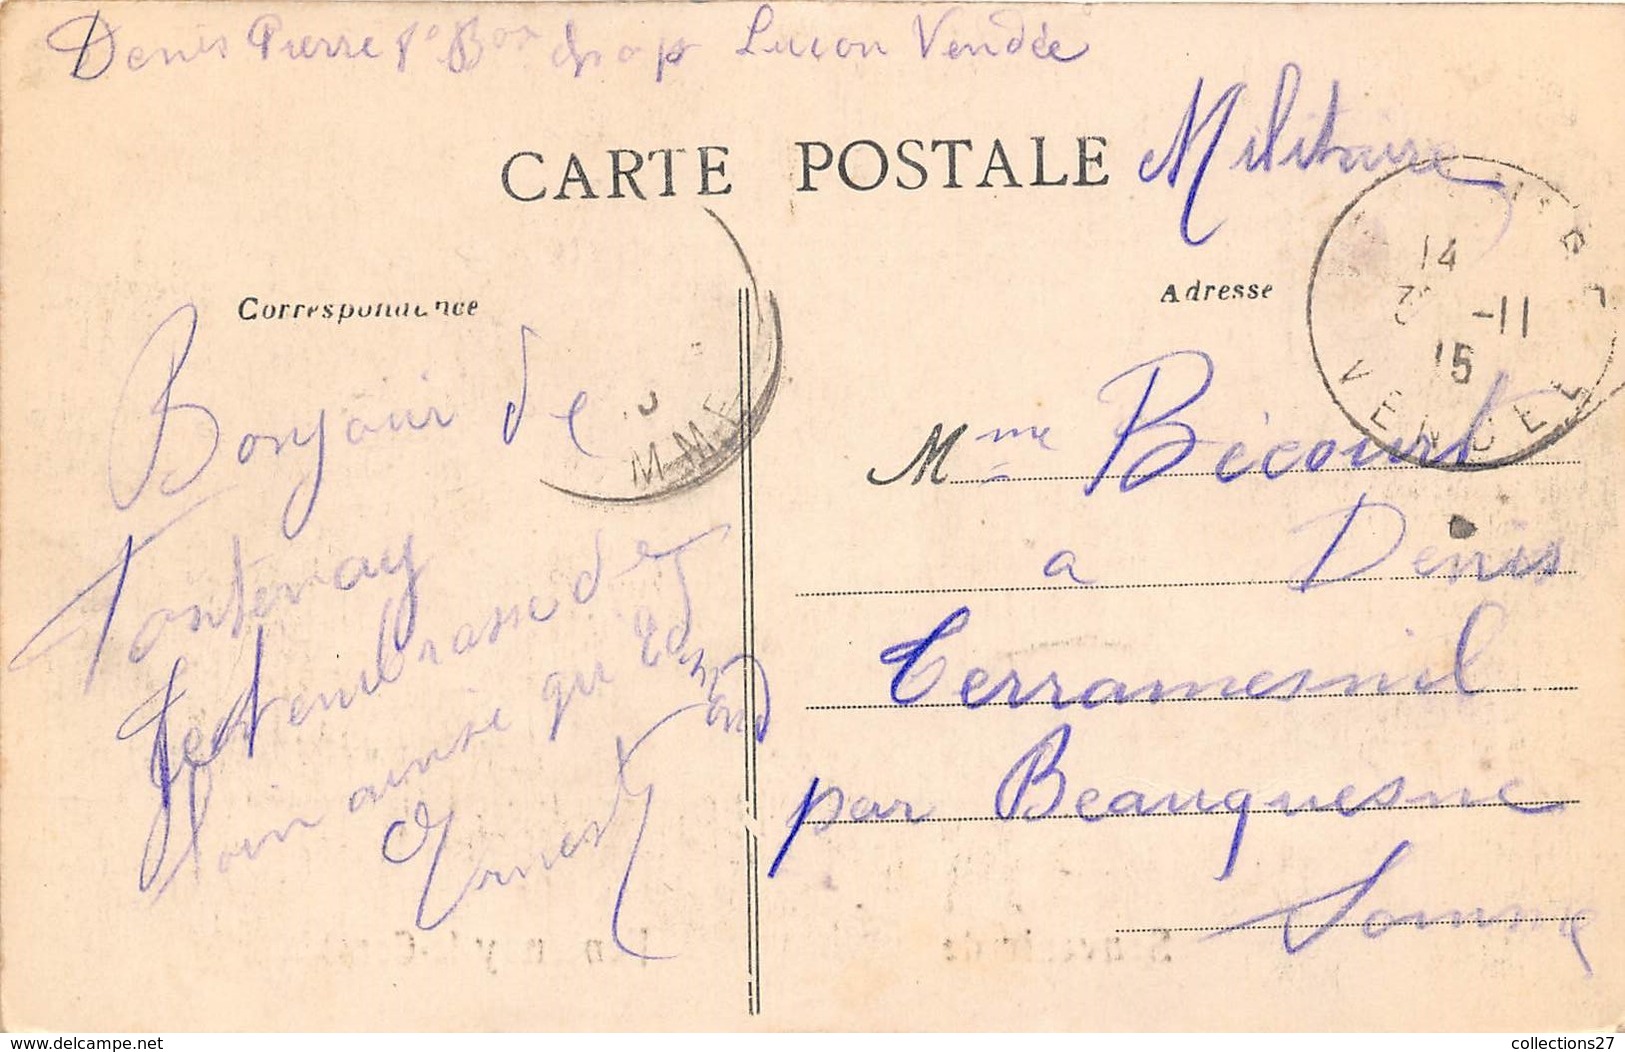 Denis Pierre 8e Bon chap Luçon Vendée
CARTE POSTALE
Militaire
Correspondance
Adresse
14
-11
15
VENDEE
MME
Bonjour de
Fontenay
Je t'embrasse de
loin ainsi qu'Edmond
Ernest
Mme Bécourt
a Denis
Terramesnil
par Beauquesne
Somme
www.delcampe.net
collections27